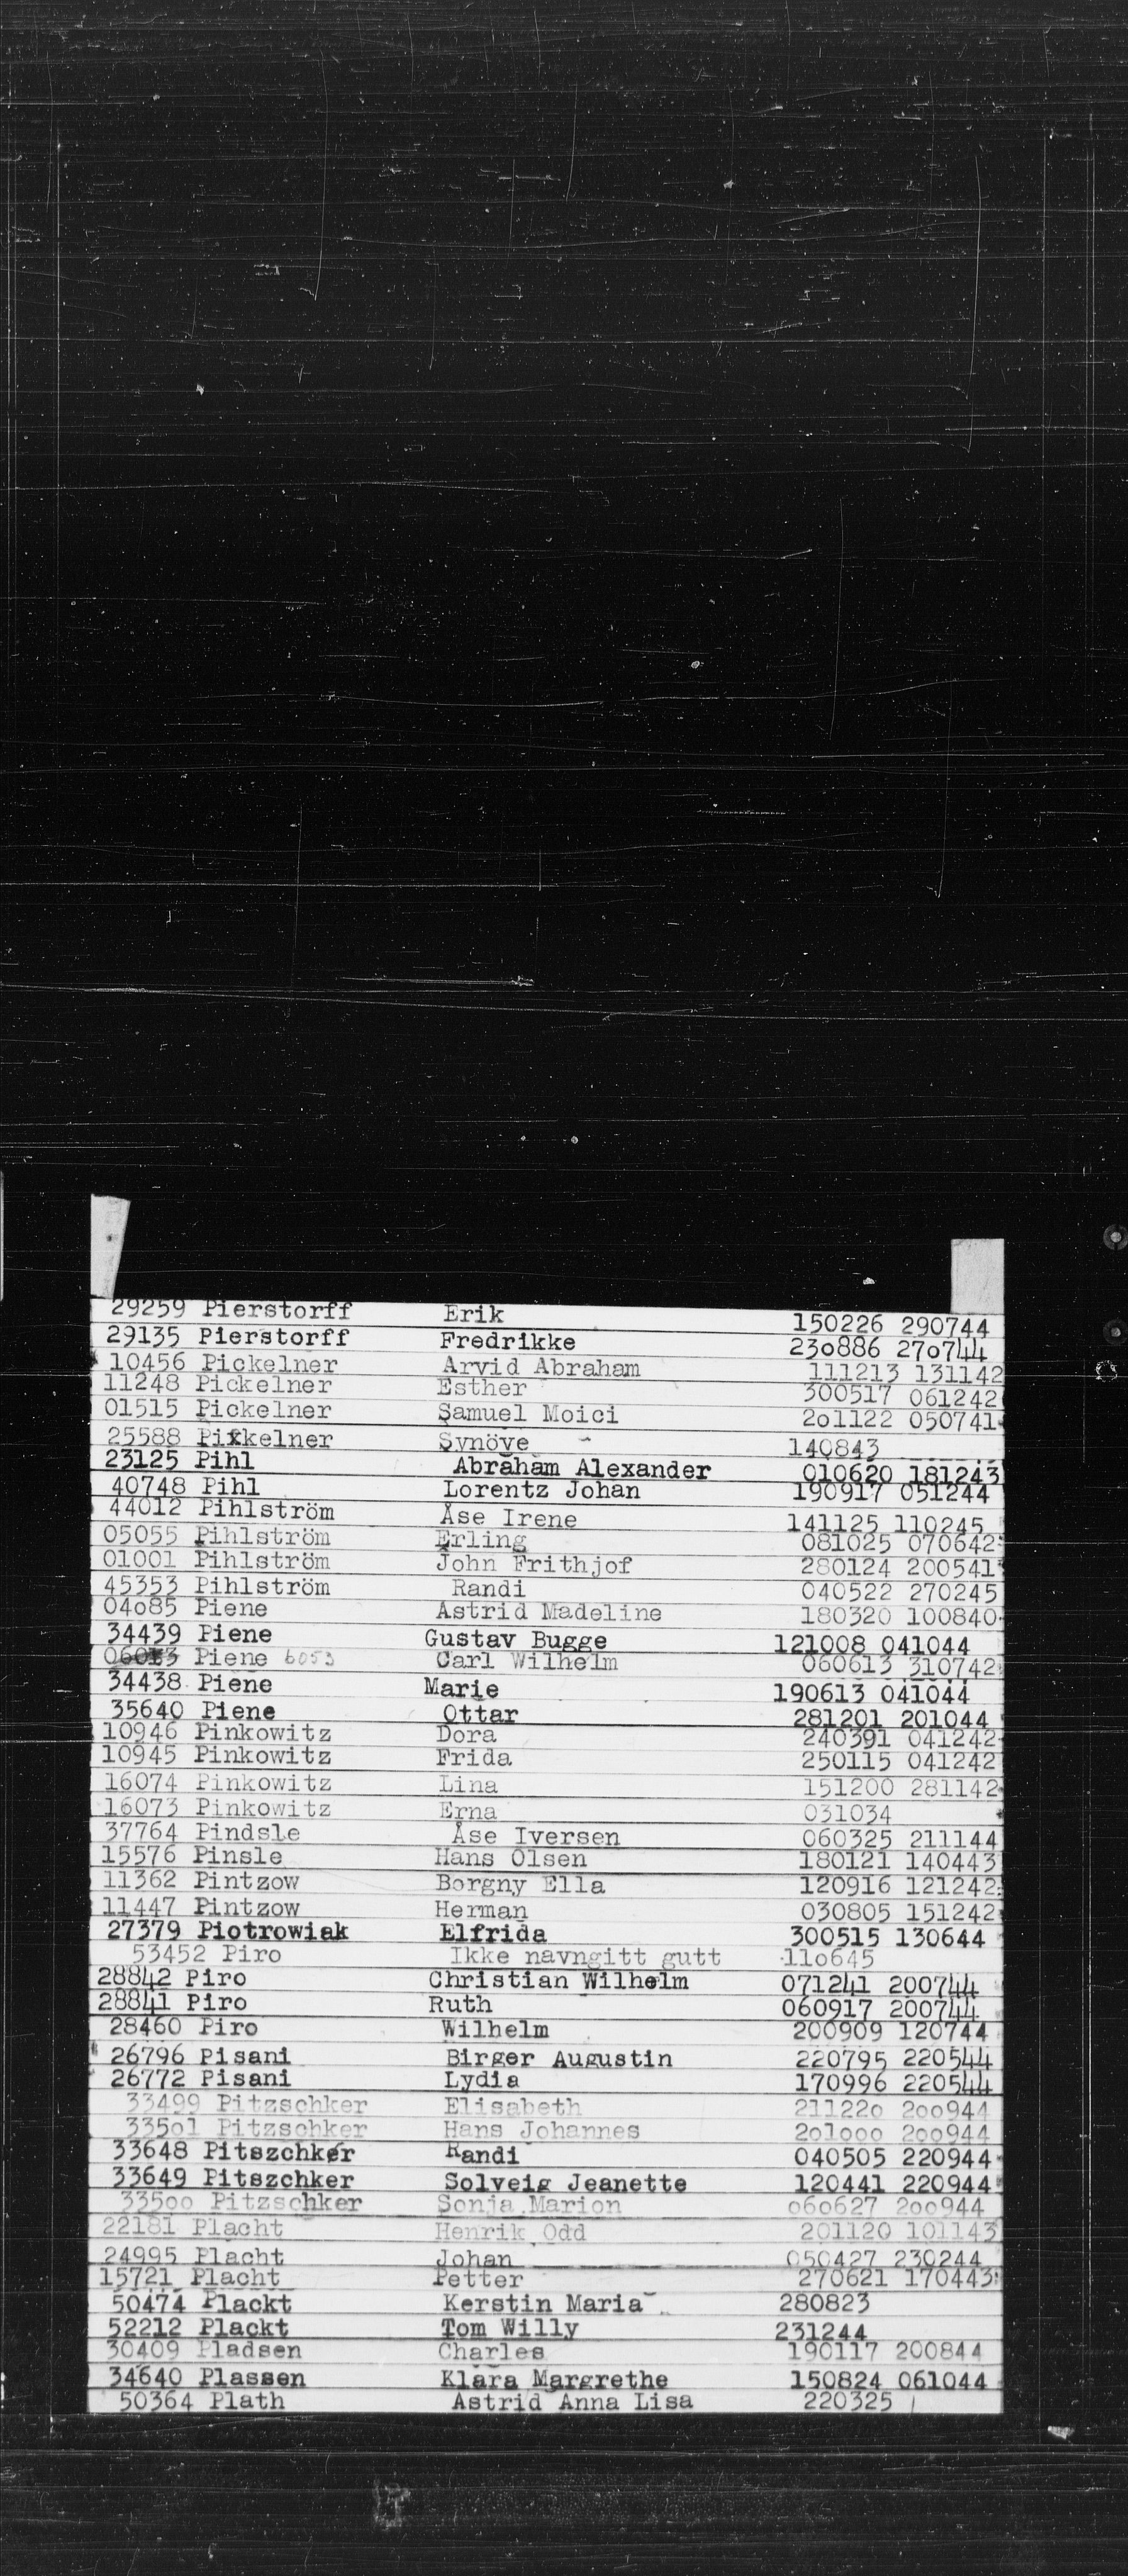 29259 Pierstorff Erik 150226 290744
29135 Pierstorff Fredrikke 23o886 27o744
10456 Pickelner Arvid Abraham 111213 131142
11248 Pickelner Esther 300517 061242
01515 Pickelner Samuel Moici 2o1122 050741
25588 Pixkelner Synöve 140843
23125 Pihl Abraham Alexander 010620 181243
40748 Pihl Lorentz Johan 190917 051244
44012 Pihlström Åse Irene 141125 110245
05055 Pihlström Erling 081025 070642
01001 Pihlström John Frithjof 280124 200541
45353 Pihlström Randi 040522 270245
04o85 Piene Astrid Madeline 180320 100840
34439 Piene Gustav Bugge 121008 041044
Piene 6053 Carl Wilhelm 060613 310742
34438 Piene Marie 190613 041044
35640 Piene Ottar 281201 201044
10946 Pinkowitz Dora 240391 041242
10945 Pinkowitz Frida 250115 041242
16074 Pinkowitz Lina 151200 281142
16073 Pinkowitz Erna 031034
37764 Pindsle Åse Iversen 060325 211144
15576 Pinsle Hans Olsen 180121 140443
11362 Pintzow Borgny Ella 120916 121242
11447 Pintzow Herman 030805 151242
27379 Piotrowiak Elfrida 300515 130644
53452 Piro Ikke navngitt gutt 11o645
28842 Piro Christian Wilhelm 071241 200744
28841 Piro Ruth 060917 200744
28460 Piro Wilhelm 200909 120744
26796 Pisani Birger Augustin 220795 220544
26772 Pisani Lydia 170996 220544
33499 Pitzschker Elisabeth 21122o 2oo944
335o1 Pitzschker Hans Johannes 2o1ooo 2oo944
33648 Pitszchker Randi 040505 220944
33649 Pitszchker Solveig Jeanette 120441 220944
335oo Pitzschker Sonja Marion o6o627 2oo944
22181 Placht Henrik Odd 201120 101143
24995 Placht Johan 050427 230244
15721 Placht Petter 270621 170443
50474 Plackt Kerstin Maria 280823
52212 Plackt Tom Willy 231244
30409 Pladsen Charles 190117 200844
34640 Plassen Klara Margrethe 150824 061044
50364 Plath Astrid Anna Lisa 220325